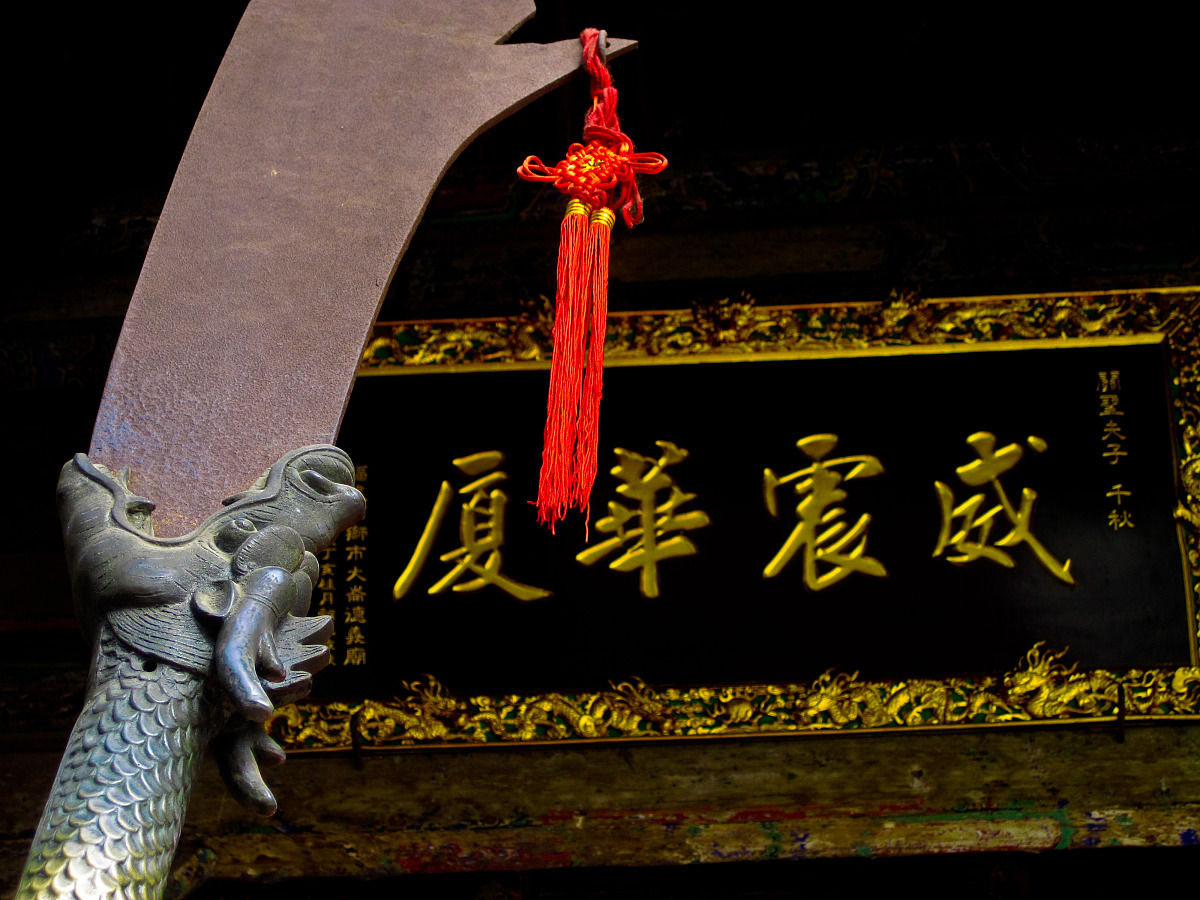 關聖夫子 千秋
威震華廈
獅市大崙德義廟
亥桂月